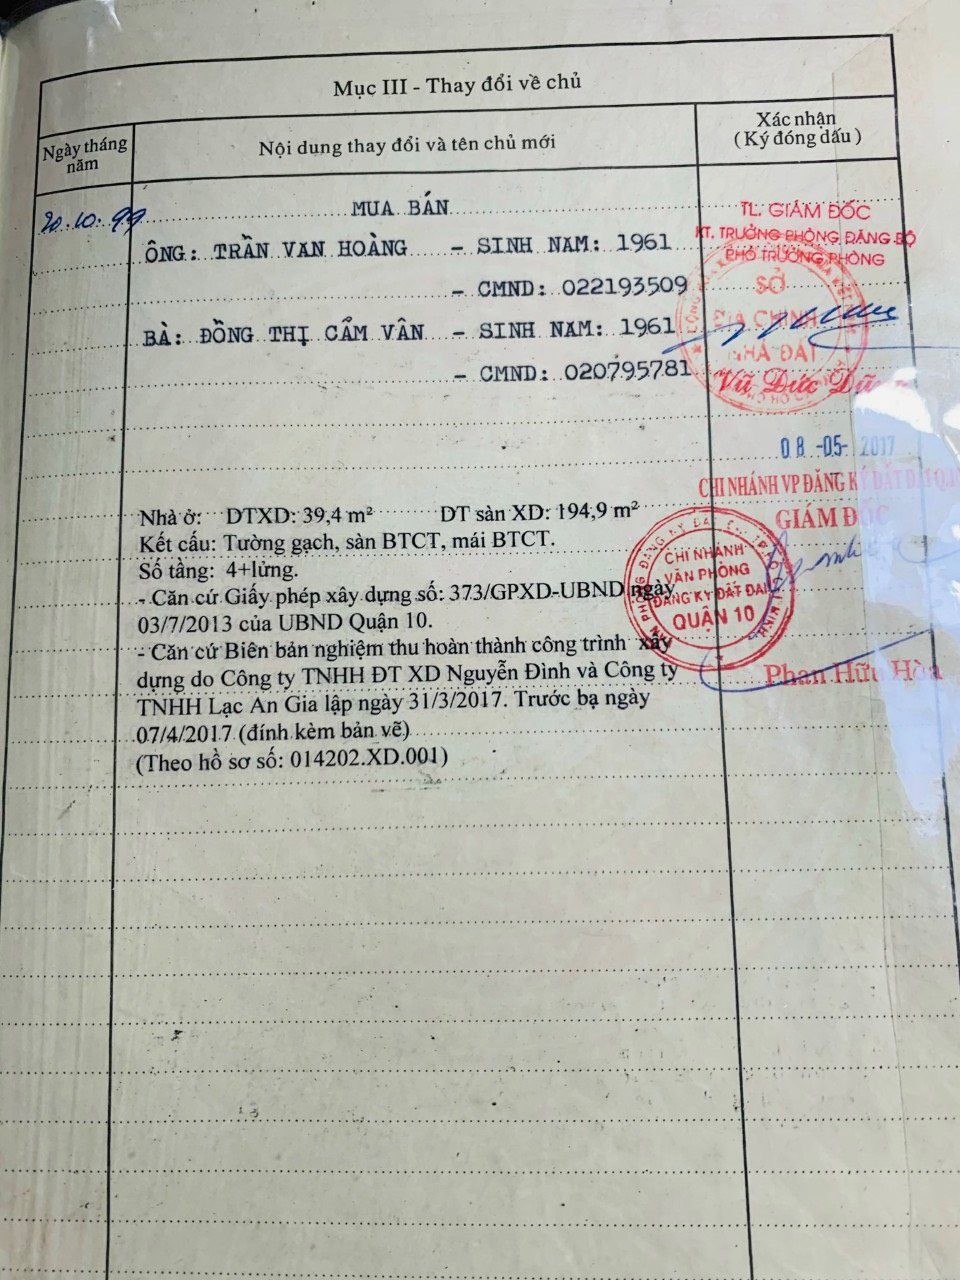 Mục III - Thay đổi về chủ
Ngày tháng năm
Nội dung thay đổi và tên chủ mới
Xác nhận
( Ký đóng dấu )
20.10.99
MUA BÁN
ÔNG: TRẦN VAN HOÀNG - SINH NAM: 1961
- CMND: 022193509
BÀ: ĐỒNG THỊ CẨM VÂN - SINH NAM: 1961
- CMND: 020795781
TL. GIÁM ĐỐC
KT. TRƯỞNG PHÒNG ĐĂNG BỘ
PHÓ TRƯỞNG PHÒNG
SỞ
ĐỊA CHÍNH
NHÀ ĐẤT
Vũ Đức
08 -05- 2017
CHI NHÁNH VP ĐĂNG KÝ ĐẤT ĐAI
GIÁM ĐỐC
Nhà ở: DTXD: 39,4 m² DT sàn XD: 194,9 m²
Kết cấu: Tường gạch, sàn BTCT, mái BTCT.
Số tầng: 4+lửng.
- Căn cứ Giấy phép xây dựng số: 373/GPXD-UBND ngày
03/7/2013 của UBND Quận 10.
- Căn cứ Biên bản nghiệm thu hoàn thành công trình xây
dựng do Công ty TNHH ĐT XD Nguyễn Đình và Công ty
TNHH Lạc An Gia lập ngày 31/3/2017. Trước bạ ngày
07/4/2017 (đính kèm bản vẽ)
(Theo hồ sơ số: 014202.XD.001)
CHI NHÁNH
VĂN PHÒNG
ĐĂNG KÝ ĐẤT ĐAI
QUẬN 10
Phan Hữu Hòa